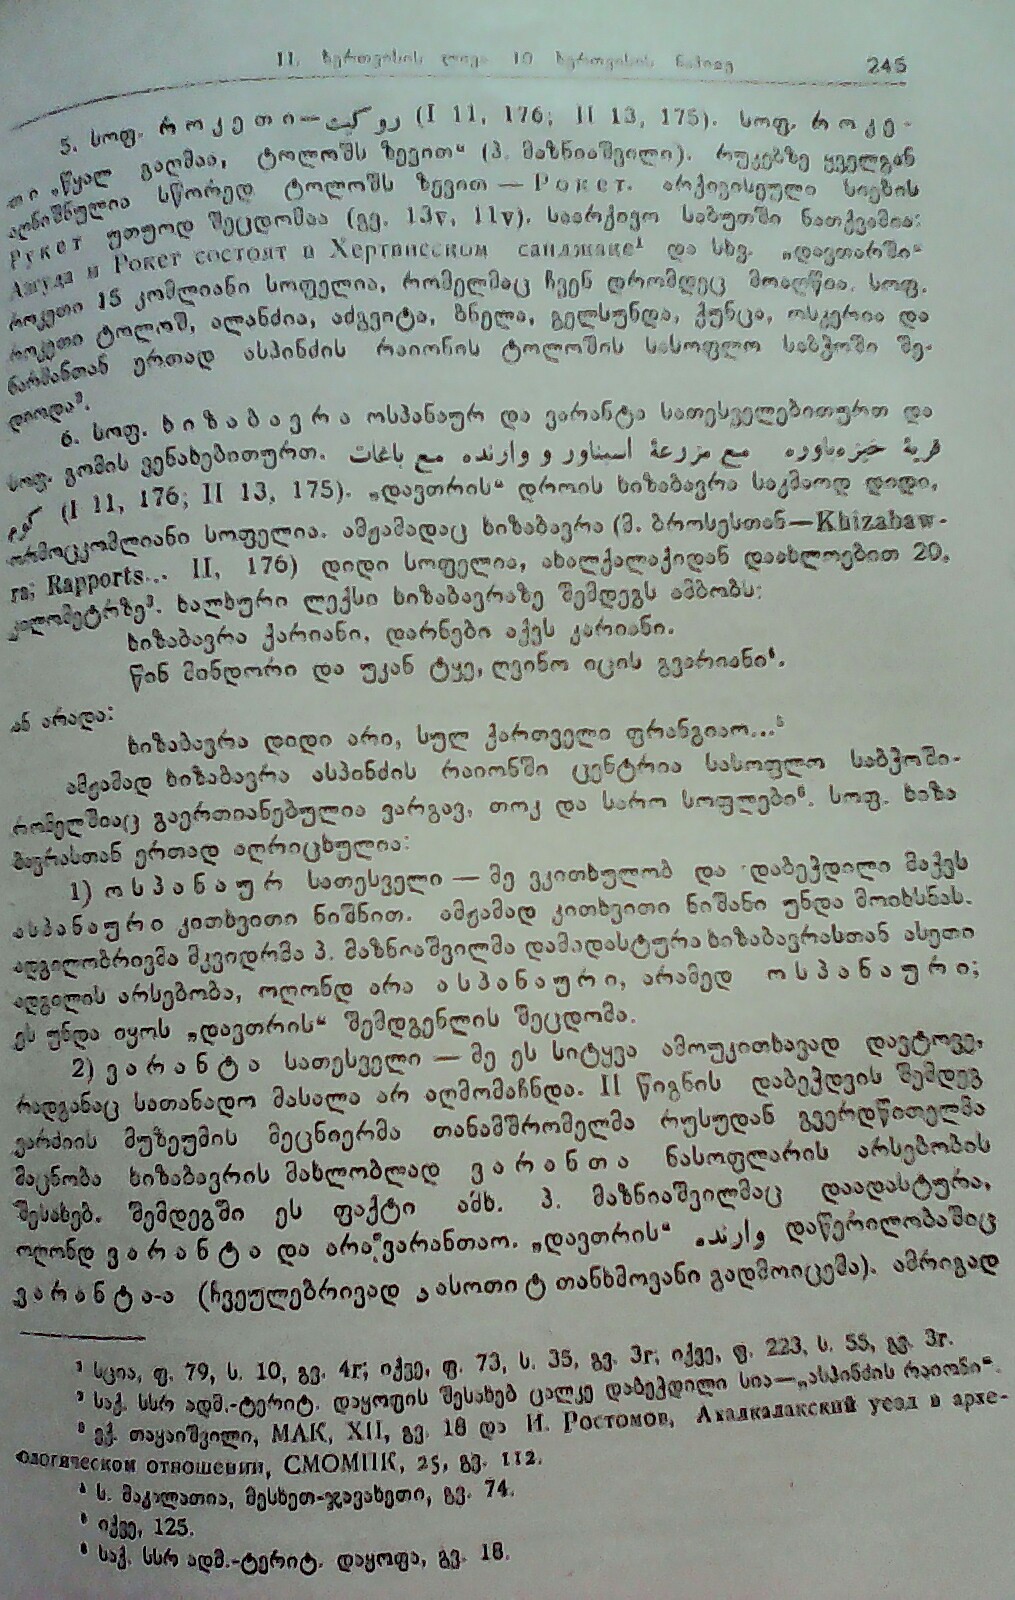 II. ხერთვისის ლივა 10 ხერთვისის ნაჰიე 245
5. სოფ. როკეთი—روكت (I 11, 176; II 13, 175). სოფ. როკე-
თი „წყალ გაღმაა, ტოლოშს ზევით“ (პ. მაზნიაშვილი). რუკებზე ყველგან
აღნიშნულია სწორედ ტოლოშს ზევით — Рокет. არქივისეული სიების
Рукет უთუოდ შეცდომაა (გვ. 13v, 11v). საარქივო საბუთში ნათქვამია:
и Рокет состоят в Хертвисском санджаке¹ და სხვ. „დავთარში“
როკეთი 15 კომლიანი სოფელია, რომელმაც ჩვენ დრომდეც მოაღწია. სოფ.
როკეთი ტოლოშ, ალანძია, აძგვიტა, ბნელა, გელსუნდა, ჭუნცა, ოსკერია და
ნარმანთან ერთად ასპინძის რაიონის ტოლოშის სასოფლო საბჭოში შე-
დიოდა².
6. სოფ. ხიზაბავრა ოსპანაურ და ვარანტა სათესველებითურთ და
სოფ. გომის ვენახებითურთ. قرية خيزهباوره مع مزرعۀ اسپناور و وارنده مع باغات
(I 11, 176; II 13, 175). „დავთრის“ დროის ხიზაბავრა საკმაოდ დიდი,
ორმოცკომლიანი სოფელია. ამჟამადაც ხიზაბავრა (მ. ბროსესთან—Khizabaw-
ra; Rapports... II, 176) დიდი სოფელია, ახალქალაქიდან დაახლოებით 20,
კილომეტრზე³. ხალხური ლექსი ხიზაბავრაზე შემდეგს ამბობს:
ხიზაბავრა ქარიანი, დარნები აქვს კარიანი.
წინ მინდორი და უკან ტყე, ღვინო იცის გვარიანი⁴.
ან არადა:
ხიზაბავრა დიდი არი, სულ ქართველი ფრანგიაო...⁵
ამჟამად ხიზაბავრა ასპინძის რაიონში ცენტრია სასოფლო საბჭოში-
რომელშიაც გაერთიანებულია ვარგავ, თოკ და სარო სოფლები⁶. სოფ. ხიზა
ბავრასთან ერთად აღრიცხულია:
1) ოსპანაურ სათესველი — მე ვკითხულობ და დაბეჭდილი მაქვს
ასპანაური კითხვითი ნიშნით. ამჟამად კითხვითი ნიშანი უნდა მოიხსნას.
ადგილობრივმა მკვიდრმა პ. მაზნიაშვილმა დამადასტურა ხიზაბავრასთან ასეთი
ადგილის არსებობა, ოღონდ არა ასპანაური, არამედ ოსპანაური;
ეს უნდა იყოს „დავთრის“ შემდგენლის შეცდომა.
2) ვარანტა სათესველი — მე ეს სიტყვა ამოუკითხავად დავტოვე,
რადგანაც სათანადო მასალა არ აღმომაჩნდა. II წიგნის დაბეჭდვის შემდეგ
ვარძიის მუზეუმის მეცნიერმა თანამშრომელმა რუსუდან გვერდწითელმა
მაცნობა ხიზაბავრის მახლობლად ვარანთა ნასოფლარის არსებობის
შესახებ. შემდეგში ეს ფაქტი ამხ. პ. მაზნიაშვილმაც დაადასტურა,
ოღონდ ვარანტა და არა „ვარანთაო. „დავთრის“ وارنده დაწერილობაშიც
ვარანტა-ა (ჩვეულებრივად د ასოთი ტ თანხმოვანი გადმოიცემა). ამრიგად
¹ სცია, ფ. 79, ს. 10, გვ. 4r; იქვე, ფ. 73, ს. 35, გვ. 3r; იქვე, ფ. 223, ს. 55, გვ. 3r.
² საქ. სსრ ადმ.-ტერიტ. დაყოფის შესახებ ცალკე დაბეჭდილი სია—„ასპინძის რაიონი“.
³ ექ. თაყაიშვილი, МАК, XII, გვ. 18 და И. Ростомов, Ахалкалакский уезд в архе-
ологическом отношении, СМОМПК, 25, გვ. 112.
⁴ ს. მაკალათია, მესხეთ-ჯავახეთი, გვ. 74.
⁵ იქვე, 125.
⁶ საქ. სსრ ადმ.-ტერიტ. დაყოფა, გვ. 18.